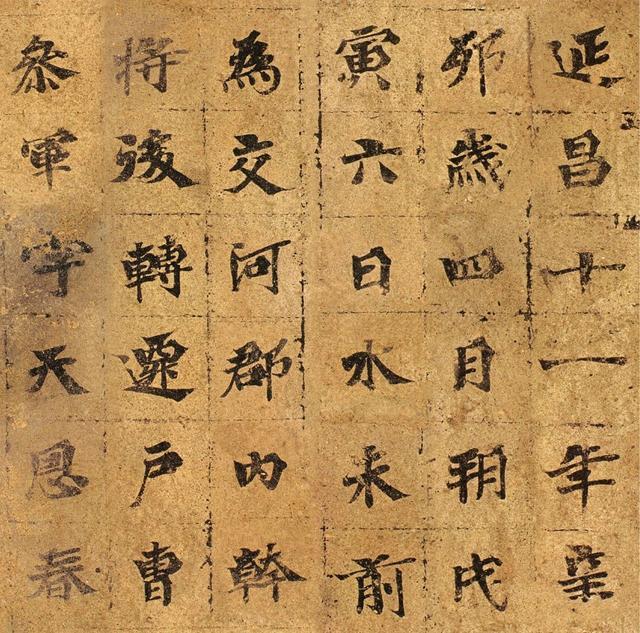 延昌十一年辛
卯歲四月朔戊
寅六日水未前
為交河郡內幹
將後轉遷戶曹
參軍字天恩春